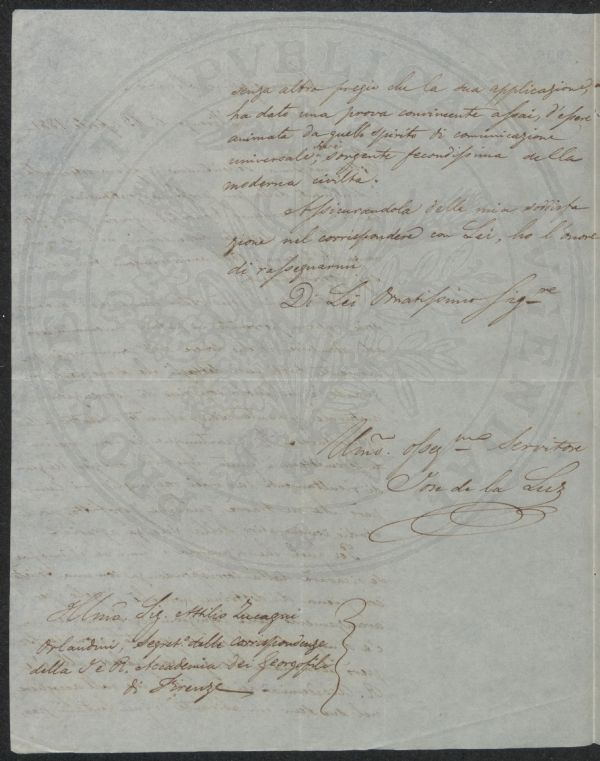 senza altro pregio che la sua applicazione,
ha dato una prova convincente assai, d'essere
animata da quello spirito di comunicazione
universale, sorgente fecondissima della
moderna civiltà.
Assicurandola della mia soddisfa
zione nel corrispondere con Lei, ho l'onore
di rassegnarmi
Di Lei Ornatissimo Sig.re
Umo. Osseq.mo Servitore
Jose de la Luz
Illmo. Sig. Attilio Zucagni
Orlandini, Segret.o delle Corrispondenze
della I e R. Accademia dei Georgofili
di Firenze
PVBLICAE